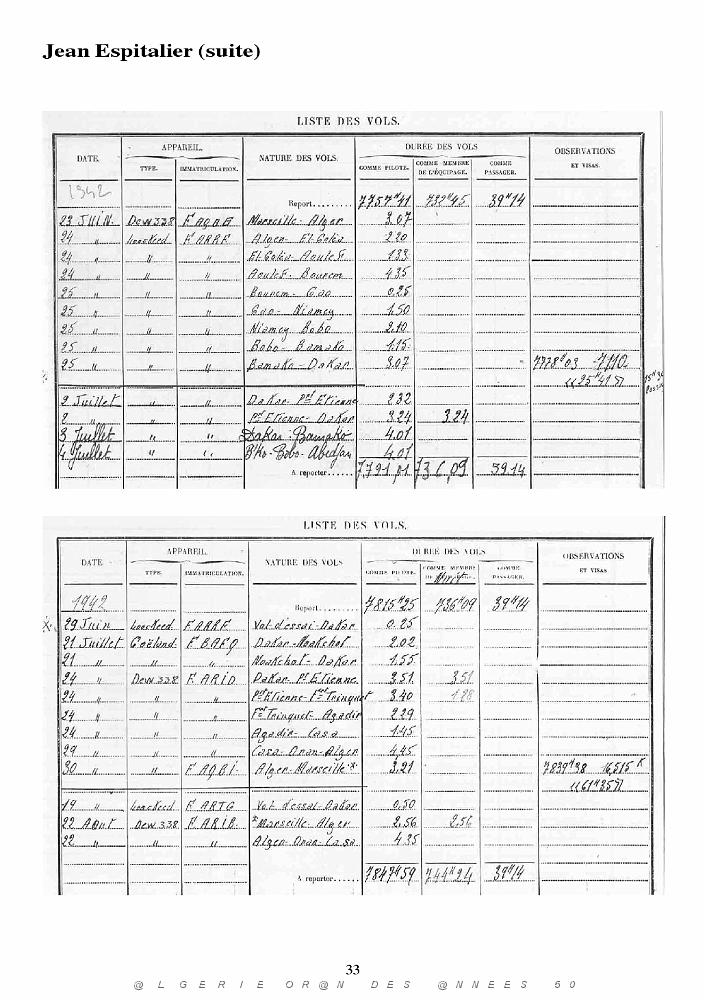 Jean Espitalier (suite)
LISTE DES VOLS.
DATE. APPAREIL. NATURE DES VOLS. DUREE DES VOLS OBSERVATIONS ET VISAS.
TYPE. IMMATRICULATION. COMME PILOTE. COMME MEMBRE DE L'ÉQUIPAGE. COMME PASSAGER.
1942 Report......... 7757H41 732H45 39H14
23 JUIN. Dew 338 F AQAB Marseille-Alger 3.07
24 " Lockeed F ARRF Alger- El Goléa 2.20
24 " " " El Goléa-Aoulef. 1.33
24 " " " Aoulef. Bourem 4.35
25 " " " Bourem- Gao 0.25
25 " " " Gao- Niamey 1.50
25 " " " Niamey Bobo 2.10
25 " " " Bobo- Bamako 1.15.
25 " " " Bamako-Dakar 3.07 7778H03 -7110
2 Juillet " " Dakar-Pt Etienne 2.32
2 " " " Pt Etienne-Dakar 3.24 3.24
3 Juillet " " Dakar-Bamako 4.01
4 Juillet " " B'Ko-Bobo-Abidjan 4.01
A reporter...... 7791.01 736.09 39.14
LISTE DES VOLS.
DATE APPAREIL. NATURE DES VOLS DUREE DES VOLS OBSERVATIONS ET VISAS
TYPE. IMMATRICULATION. COMME PILOTE. COMME MEMBRE COMME PASSAGER.
1942 Report........ 7815H25 736H09 39H14
X. 29 Juin Lockeed F ARRF Vol d'essai-Dakar 0.25
21 Juillet Goëland F BAFQ Dakar-Noakchot 2.02
21 " " " Noakchot-Dakar 1.55
24 " Dew 338 F ARID Dakar Pt Etienne. 3.51 3.51
24 " " " Pt Etienne-Ft Trinquet 3.40 1.28
24 " " " Ft Trinquet-Agadir 2.29
24 " " " Agadir-Casa 1.45
29 " " " Casa-Oran-Alger 4.45
30 " " F AQBI Alger-Marseille* 3.21 7839H38 16515 K
19 " Lockeed F ARTG Vol d'essai-Dakar 0.50
22 Aout Dew 338 F ARIB *Marseille-Alger 2.56 2.56
22 " " " Alger-Oran-Casa 4.35
A reporter...... 7847H59 744H24 39H14
33
@ L G E R I E O R @ N D E S @ N N E E S 5 0